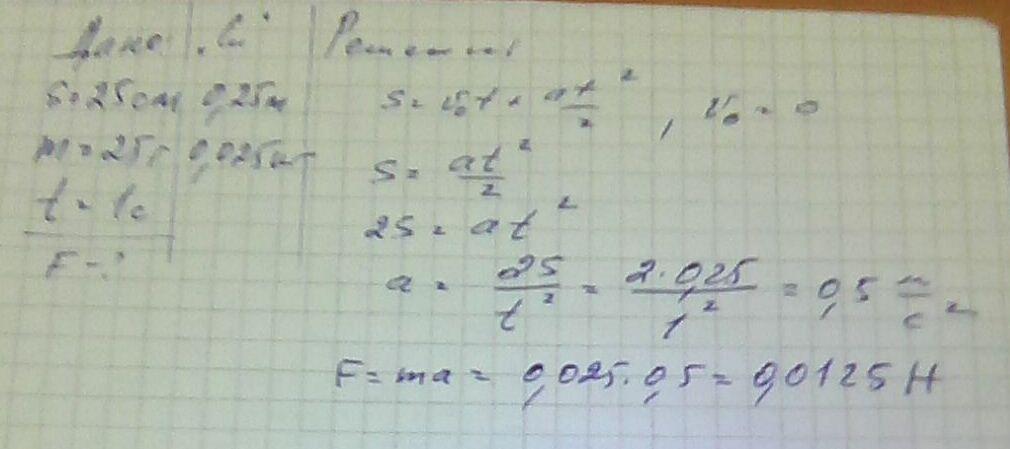 Дано: Си Решение
S = 25 см 0,25 м
m = 25 г 0,025 кг
t = 1 с
F - ?
S = v₀t + at²/2 , v₀ = 0
S = at²/2
2S = at²
a = 2S/t² = 2·0,25/1² = 0,5 м/с²
F = ma = 0,025·0,5 = 0,0125 Н